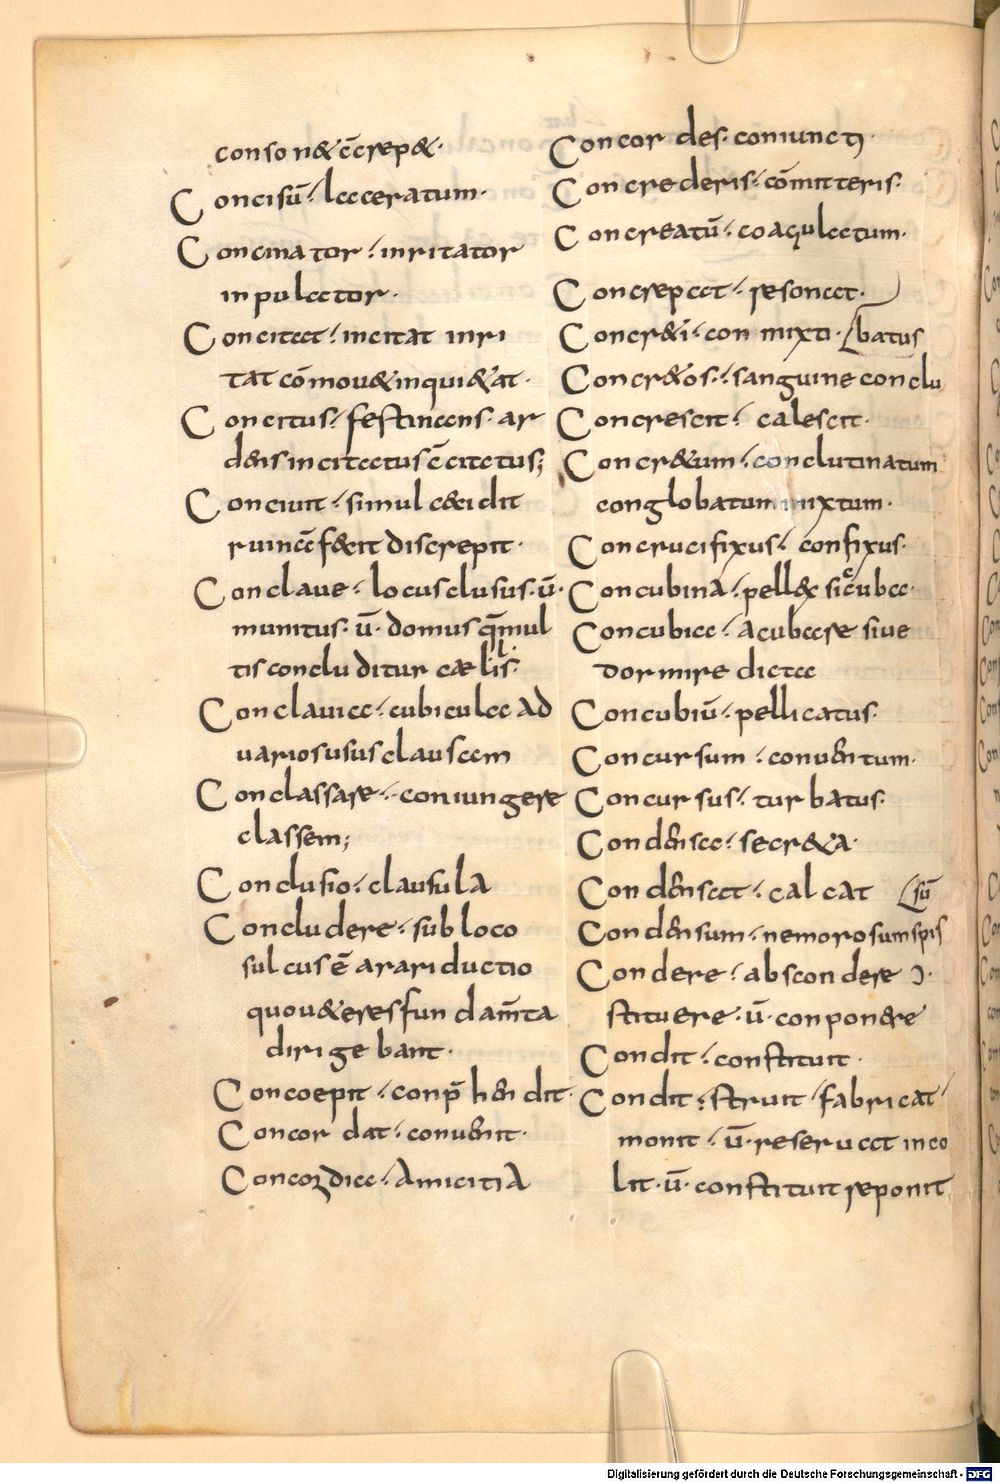 conson& c̄crep&·
Concisū· laceratum·
Concinator· inritator
inpulsator·
Concitat· incitat inri
tat cōmou& inqui&at·
Concitus· festinans· ar
dens incitatus ē citatus;
Conciuit· simul c&idit
ruinā fecit discrepit·
Conclaue· locus clusus· ū·
munitus· ū· domus q̄ mul
tis concluditur cælis·
Conclauia· cubicula ad
uarios usus clausam
Conclassare· coniungere
classem;
Conclusio· clausula
Concludere· sub loco
sulcus ē arari ductio
quo u&eres fundam̄ta
dirigebant·
Concoepit· conp̄hendit·
Concordat· conuenit·
Concordia· Amicitia
Concordes· coniunctỹ·
Concrederis· cōmitteris·
Concreatū· coaqulatum·
Concrepat· resonat·
Concr&i· conmixti· batus
Concr&os· sanguine conclu
Concrescit· calescit·
Concr&um· conclutinatum
conglobatum mixtum·
Concrucifixus· confixus·
Concubina· pell&x sic cuba·
Concubia· acubare siue
dormire dicta
Concubiū· pellicatus·
Concursum· conuentum·
Concursus· turbatus·
Condensa· secr&a·
Condensat· calcat sū
Condensum· nemorosum spis
Condere· abscondere ↄ·
stituere· ū· conponere
Condit· constituit·
Condit· struit fabricat
monit· ū· reseruat inco
lit· ū· constituit reponit
Digitalisierung gefördert durch die Deutsche Forschungsgemeinschaft - DFG